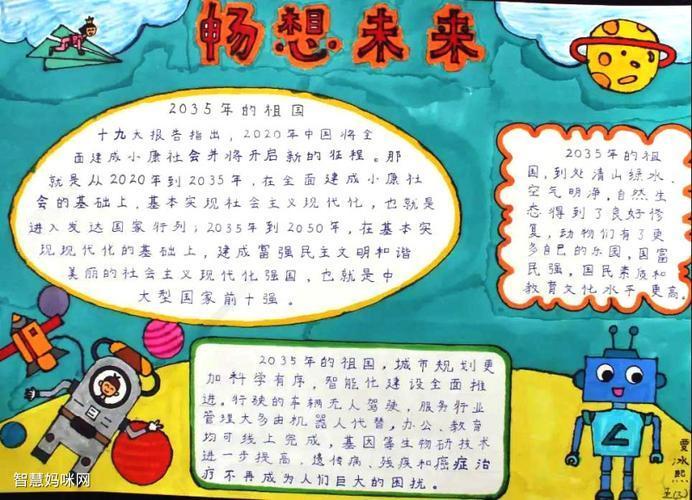 畅想未来
2035年的祖国
十九大报告指出，2020年中国将全
面建成小康社会并将开启新的征程。那
就是从2020年到2035年，在全面建成小康社
会的基础上，基本实现社会主义现代化，也就是
进入发达国家行列；2035年到2050年，在基本实
现现代化的基础上，建成富强民主文明和谐
美丽的社会主义现代化强国，也就是中
大型国家前十强。
2035年的祖
国，到处清山绿水，
空气明净，自然生
态得到了良好修
复，动物们有了更
多自己的乐园，国富
民强，国民素质和
教育文化水平更高。
2035年的祖国，城市规划更
加科学有序，智能化建设全面推
进，行驶的车辆无人驾驶，服务行业
管理大多由机器人代替，办公、教育
均可线上完成，基因等生物研技术
进一步提高，遗传病、残疾和癌症治
疗不再成为人们巨大的困扰。
贾冰熙
智慧妈咪网